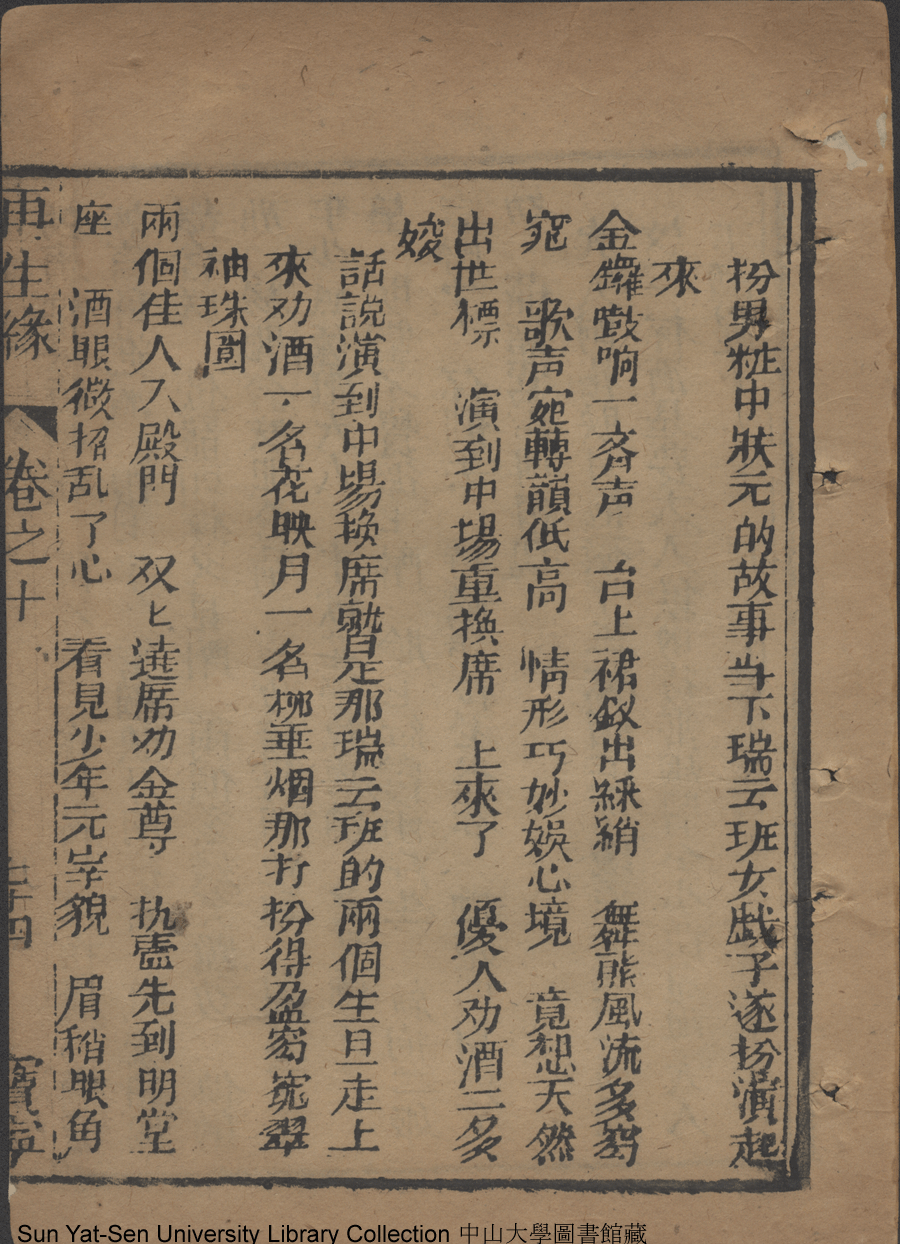 扮男粧中狀元的故事当下瑞云班女戯子遂扮演起
來
金鑼嘐响一斉声　台上裙釵出綵綃　舞態風流多窈
窕　歌声宛轉韻低高　情形巧妙娛心境　竟想天然
出世標　演到中場重換席　上來了　優人劝酒二多
姣
話說演到中場换席就是那瑞云班的兩個生旦走上
來劝酒一名花映月一名柳垂烟那打扮得盈窈窕翠
袖珠圍
兩個佳人入殿門　双匕遶席劝金尊　执壶先到明堂
座　酒眼微招乱了心　看見少年元宰貌　眉稍眼角
再生緣　卷之十　七十四　寳
Sun Yat-Sen University Library Collection 中山大學圖書館藏